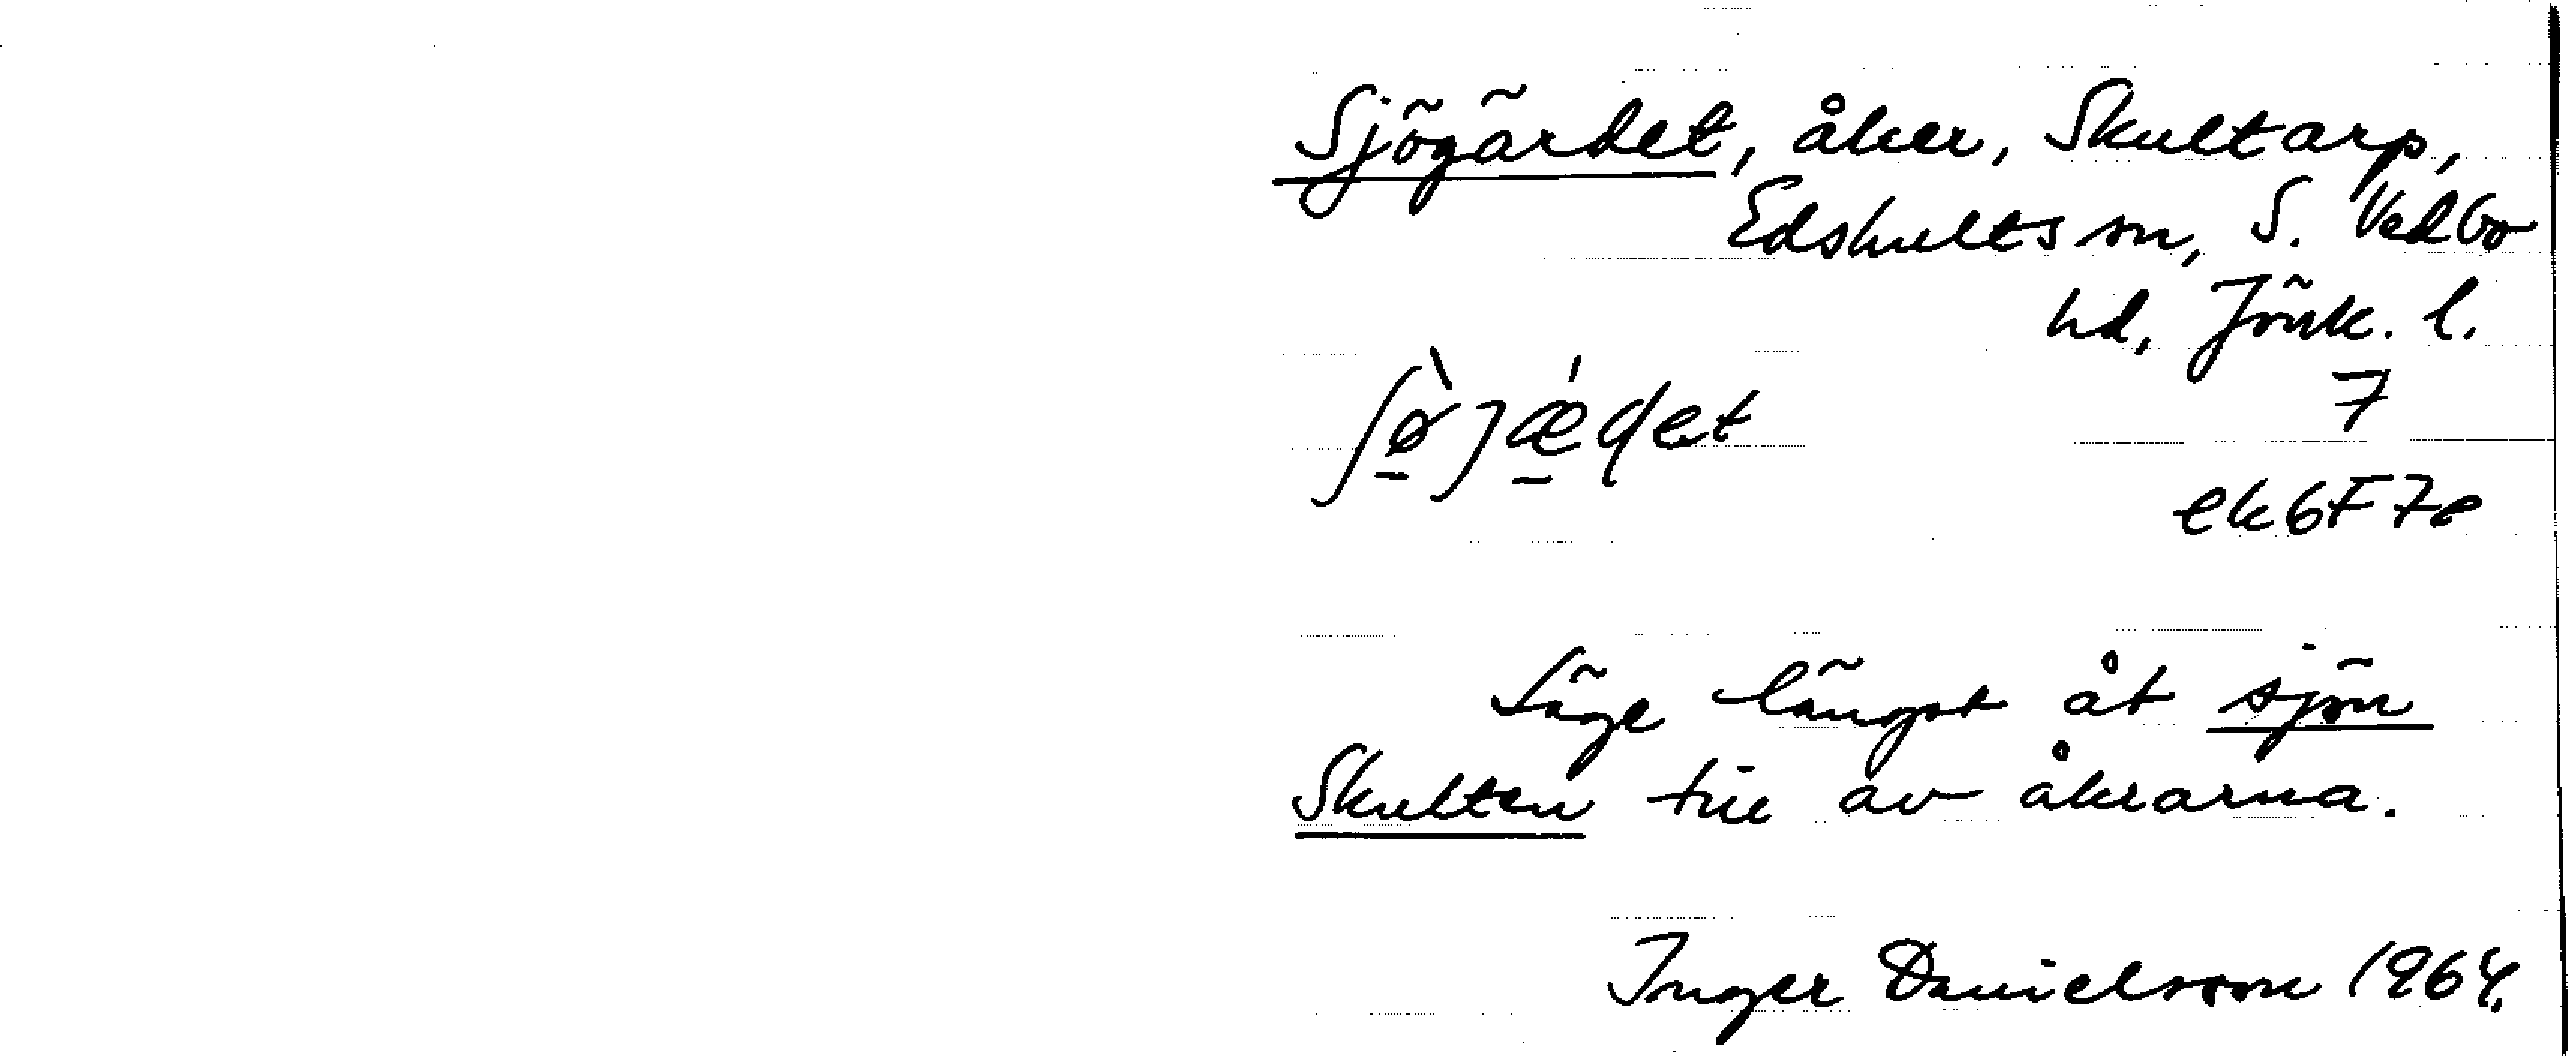 Sjögärdet, åker, Skultarp,
Edshults sn, S. Vedbo
hd, Jönk. l.
7
ek 6F7e
Läge längst åt sjön
Skulten till av åkrarna.
Inger Danielsson 1964.